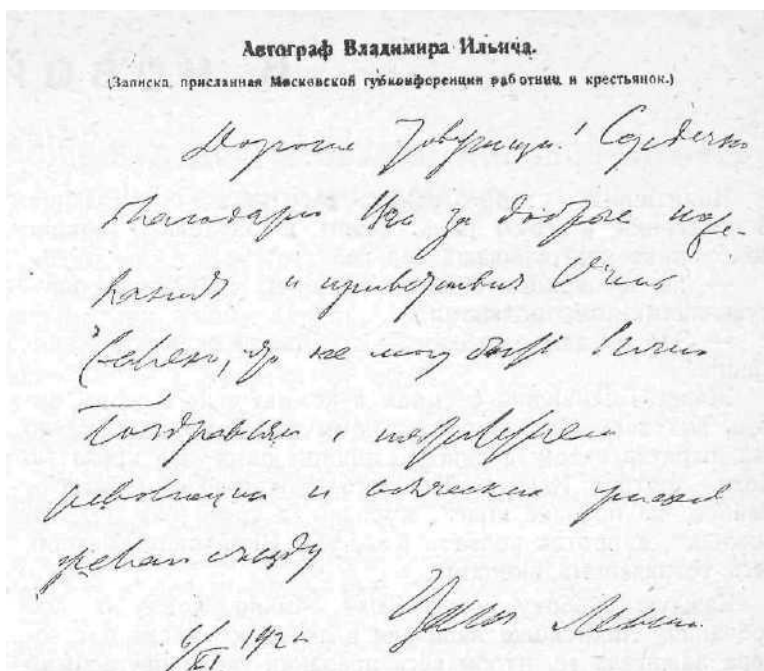 Автограф Владимира Ильича.
(Записка, присланная Московской губконференции работниц и крестьянок.)
Дорогие товарищи! Сердечно
благодарю Вас за добрые поже-
лания и приветствия Очень
жалею, что не могу быть лично
Поздравляю с пятилетием
революции и всяческих успехов
желаю съезду
6/XI 1922 Ваш Ленин